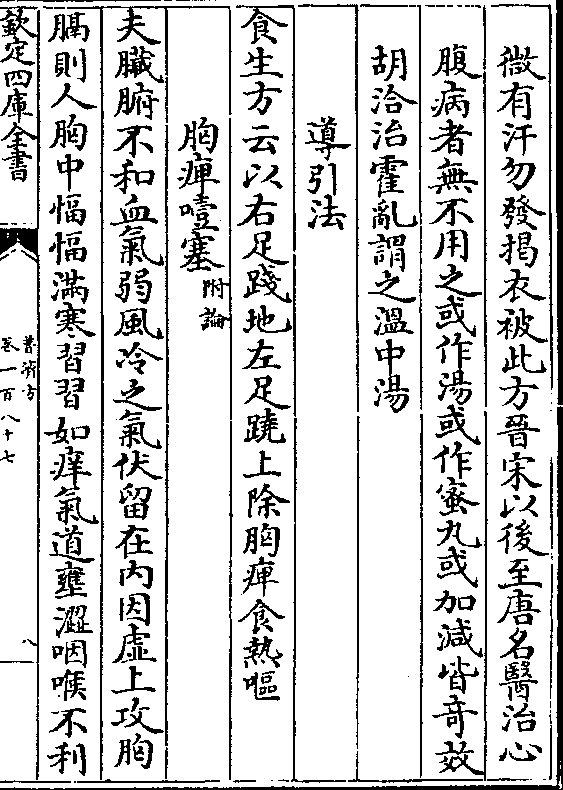 微有汗勿發揭衣被此方晉宋以後至唐名醫治心
腹病者無不用之或作湯或作蜜丸或加減皆竒效
胡洽治霍亂謂之溫中湯
導引法
食生方云以右足踐地左足蹺上除胸痺食熱嘔
胸痺噎塞附論
夫臟腑不和血氣弱風冷之氣伏留在內因虛上攻胸
膈則人胸中愊愊滿寒習習如痒氣道壅澀咽喉不利
欽定四庫全書
普濟方
卷一百八十七
八